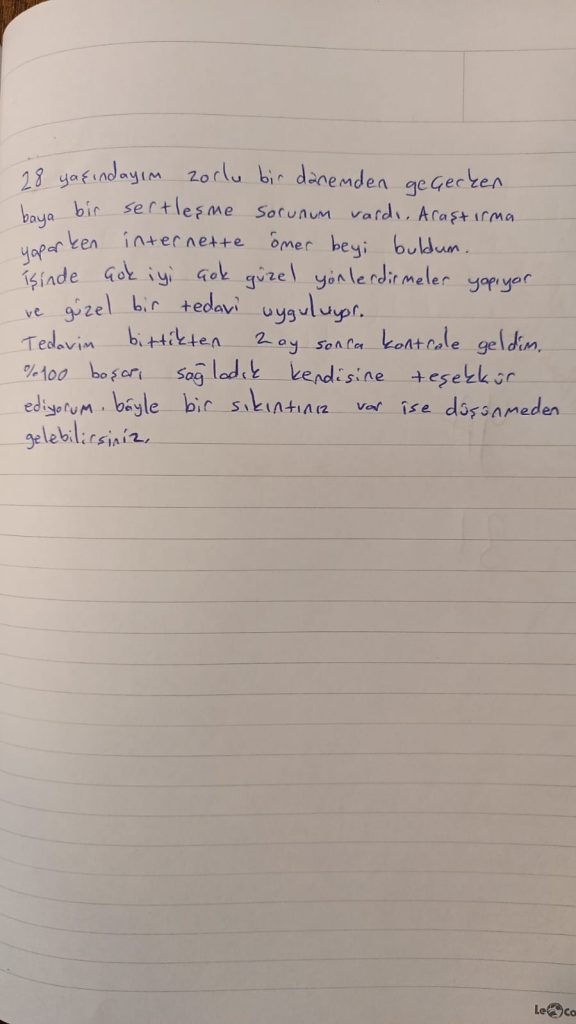 28 yaşındayım zorlu bir dönemden geçerken
baya bir sertleşme sorunum vardı. Araştırma
yaparken internette ömer beyi buldum.
işinde çok iyi çok güzel yönlerdirmeler yapıyor
ve güzel bir tedavi uyguluyor.
Tedavim bittikten 2 ay sonra kontrole geldim.
%100 başarı sağladık kendisine teşekkür
ediyorum. böyle bir sıkıntınız var ise düşünmeden
gelebilirsiniz.